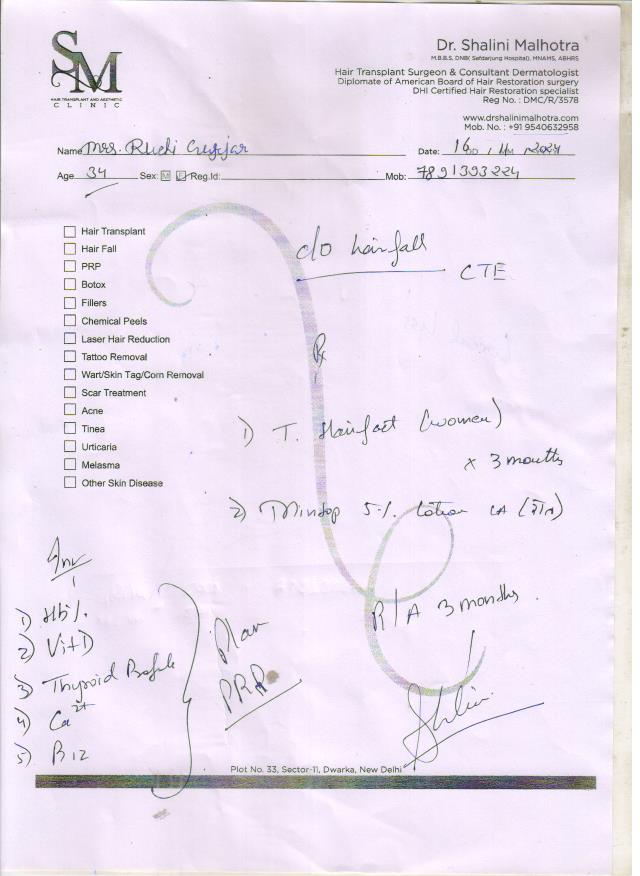 SM
HAIR TRANSPLANT AND AESTHETIC
CLINIC
Dr. Shalini Malhotra
M.B.B.S, DNB( Safdarjung Hospital), MNAMS, ABHRS
Hair Transplant Surgeon & Consultant Dermatologist
Diplomate of American Board of Hair Restoration surgery
DHI Certified Hair Restoration specialist
Reg No. : DMC/R/3578
www.drshalinimalhotra.com
Mob. No. : +91 9540632958
Name Mrs. Ruchi Gujjar Date: 16
Age 34 Sex: M F Reg.Id: Mob: 7891393224
c/o hairfall
CTE
Hair Transplant
Hair Fall
PRP
Botox
Fillers
Chemical Peels
Laser Hair Reduction
Tattoo Removal
Wart/Skin Tag/Corn Removal
Scar Treatment
Acne
Tinea
Urticaria
Melasma
Other Skin Disease
Rx
1) T. Hairfact (women)
x 3 months
2) Mintop 5% lotion LA
R/A 3 months.
Inv
1) Hb%
2) Vit D
3) Thyroid Profile
4) Ca2+
5) B12
Plan
PRP
Shalini
Plot No. 33, Sector-11, Dwarka, New Delhi